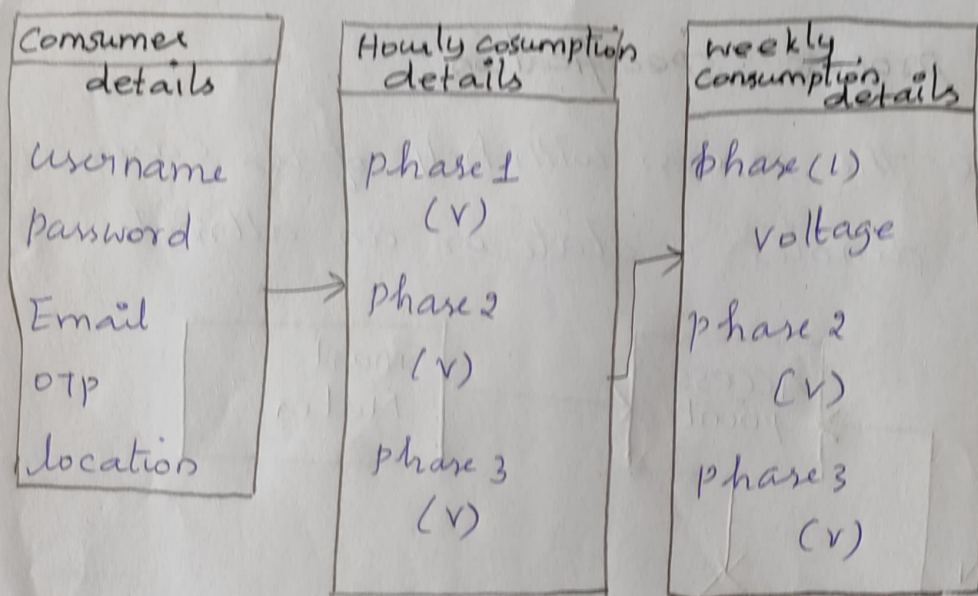 Comsumer
details
username
password
Email
OTP
location
Hourly cosumption
details
phase 1
(V)
phase 2
(V)
phase 3
(V)
weekly
consumption
details
phase (1)
voltage
phase 2
(V)
phase 3
(V)